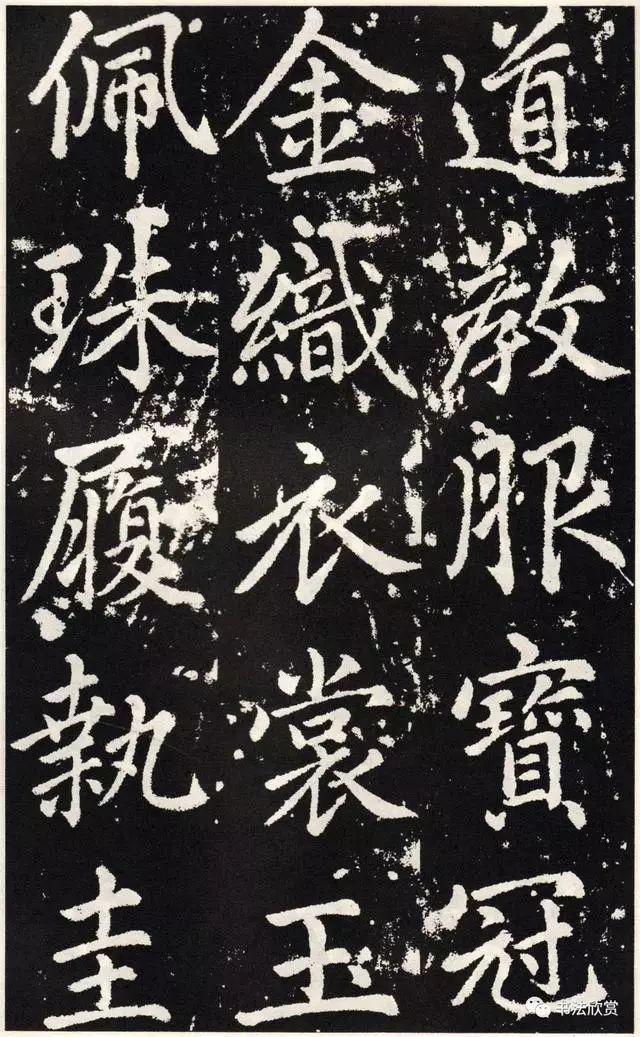 道教服寳冠
金織衣裳玉
佩珠履執圭
书法欣赏